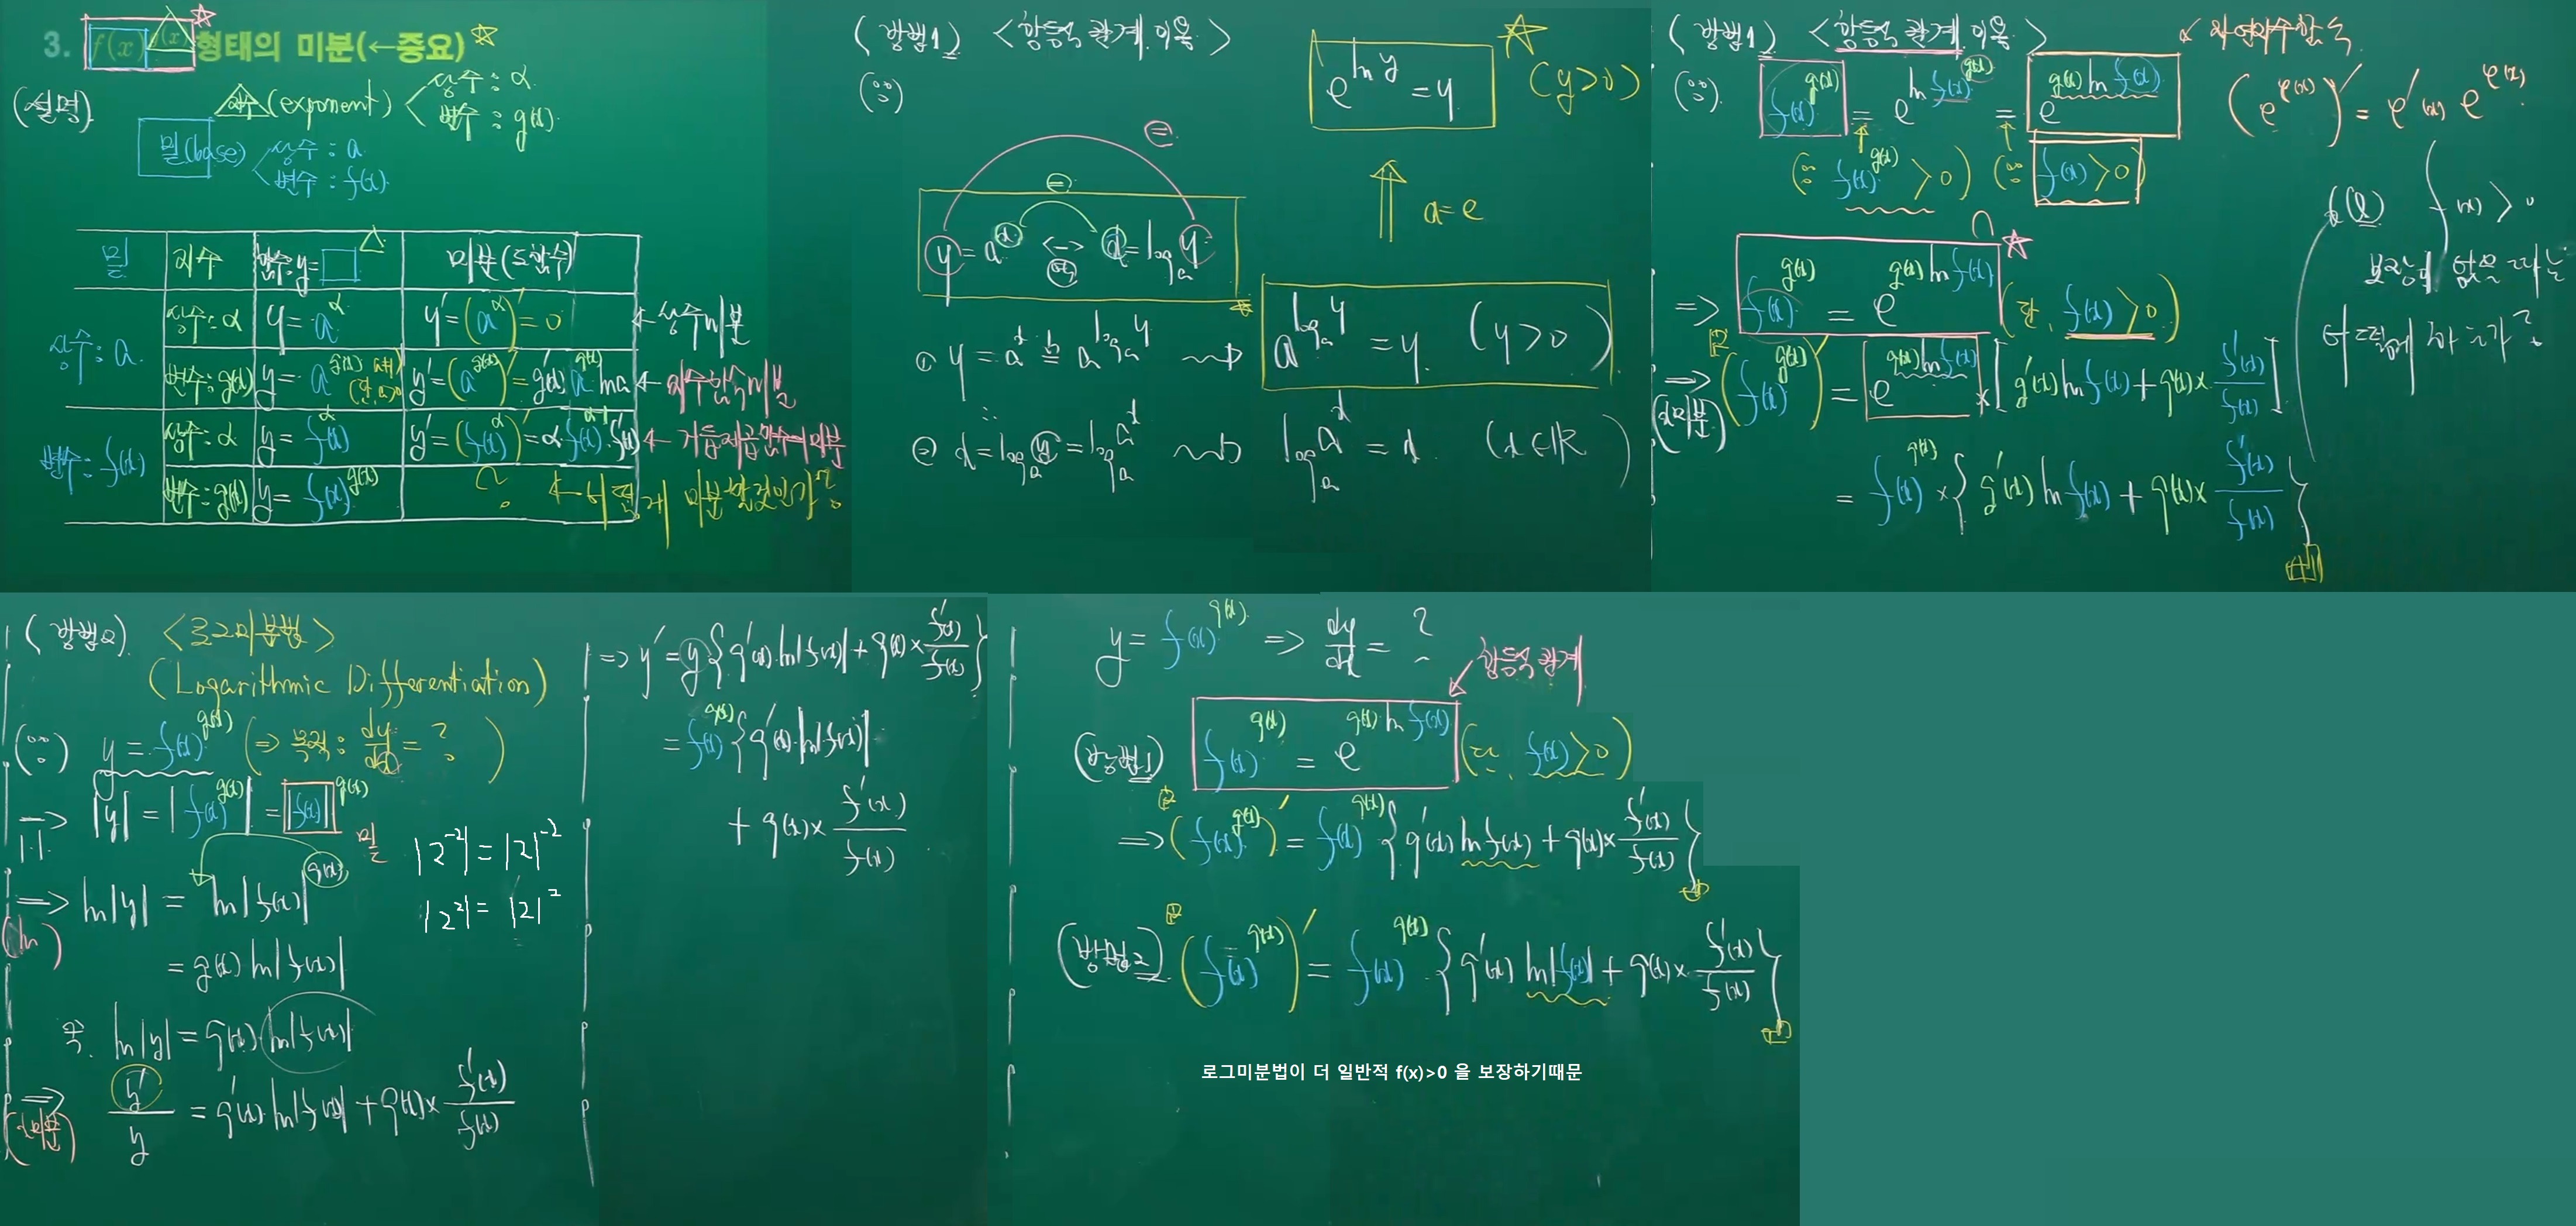 3. f(x)^g(x) 형태의 미분(←중요)
(설명)
지수(exponent) 상수 : α
변수 : g(x)
밑(base) 상수 : a
변수 : f(x)
밑 지수 함수 y= 미분(도함수)
상수 : a 상수 : α y = a^α y' = (a^α)' = 0 ← 상수미분
변수 : g(x) y = a^g(x) y' = (a^g(x))' = g'(x) a^g(x) ln a ← 지수함수미분
변수 : f(x) 상수 : α y = f(x)^α y' = (f(x)^α)' = α f(x)^(α-1) · f'(x) ← 거듭제곱함수미분
변수 : g(x) y = f(x)^g(x) ? ← 어떻게 미분할것인가?
(방법1) <항등식 관계 이용>
(∵)
y = a^x ↔ x = log_a y
① y = a^x = a^(log_a y) a^(log_a y) = y (y>0)
② x = log_a y = log_a a^x log_a a^x = x (x∈R)
e^(ln y) = y (y>0)
a = e
(방법1) <항등식 관계 이용>
(∵) f(x)^g(x) = e^(ln f(x)^g(x)) = e^(g(x) ln f(x)) ← 자연지수함수
(e^φ(x))' = φ'(x) e^φ(x)
(∵ f(x)^g(x) > 0) (∵ f(x) > 0)
⇒ f(x)^g(x) = e^(g(x) ln f(x)) (단, f(x) > 0)
⇒ (f(x)^g(x))' = e^(g(x) ln f(x)) × [g'(x) ln f(x) + g(x) × f'(x)/f(x)]
(미분)
= f(x)^g(x) × {g'(x) ln f(x) + g(x) × f'(x)/f(x)}
(Q) f(x) > 0
보장이 없으면
어떻게 하는가?
(방법2) <로그미분법>
(Logarithmic Differentiation)
(∵) y = f(x)^g(x) (⇒ 목적 : dy/dx = ?)
⇒ |y| = |f(x)^g(x)| = |f(x)|^g(x)
| | 밑
|2^-2| = |2|^-2
|2^2| = |2|^2
⇒ ln|y| = ln|f(x)|^g(x)
(ln)
= g(x) ln|f(x)|
즉, ln|y| = g(x) ln|f(x)|
⇒ y'/y = g'(x) ln|f(x)| + g(x) × f'(x)/f(x)
(미분)
⇒ y' = y{g'(x) ln|f(x)| + g(x) × f'(x)/f(x)}
= f(x)^g(x) {g'(x) ln|f(x)|
+ g(x) × f'(x)/f(x)
y = f(x)^g(x) ⇒ dy/dx = ?
항등식 관계
(방법1) f(x)^g(x) = e^(g(x) ln f(x)) (단, f(x) > 0)
⇒ (f(x)^g(x))' = f(x)^g(x) {g'(x) ln f(x) + g(x) × f'(x)/f(x)}
(방법2) (f(x)^g(x))' = f(x)^g(x) {g'(x) ln|f(x)| + g(x) × f'(x)/f(x)}
로그미분법이 더 일반적 f(x)>0 을 보장하기때문